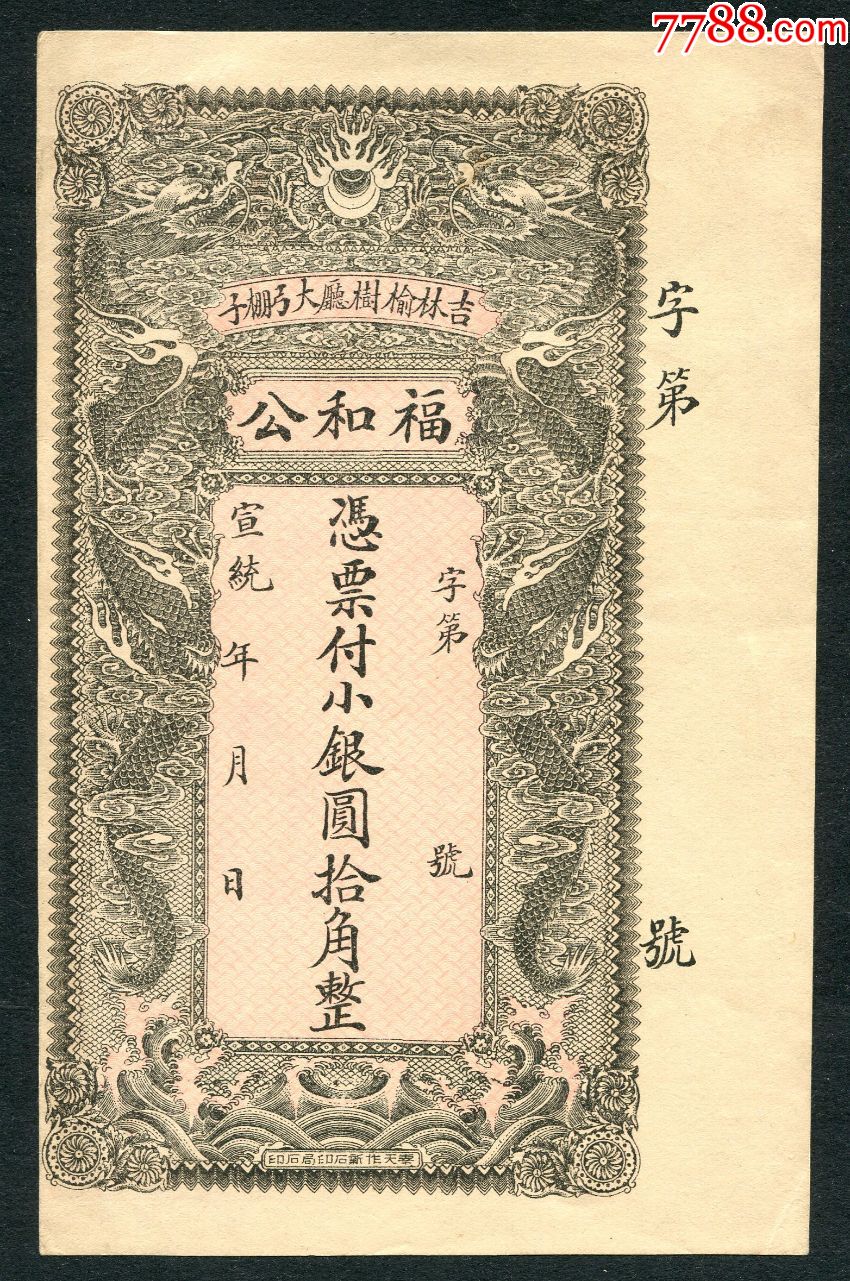 7788.com
吉林榆樹廳大弓棚子
福和公
字第 號
憑票付小銀圓拾角整
宣統 年 月 日
字第 號
奉天作新石印局石印